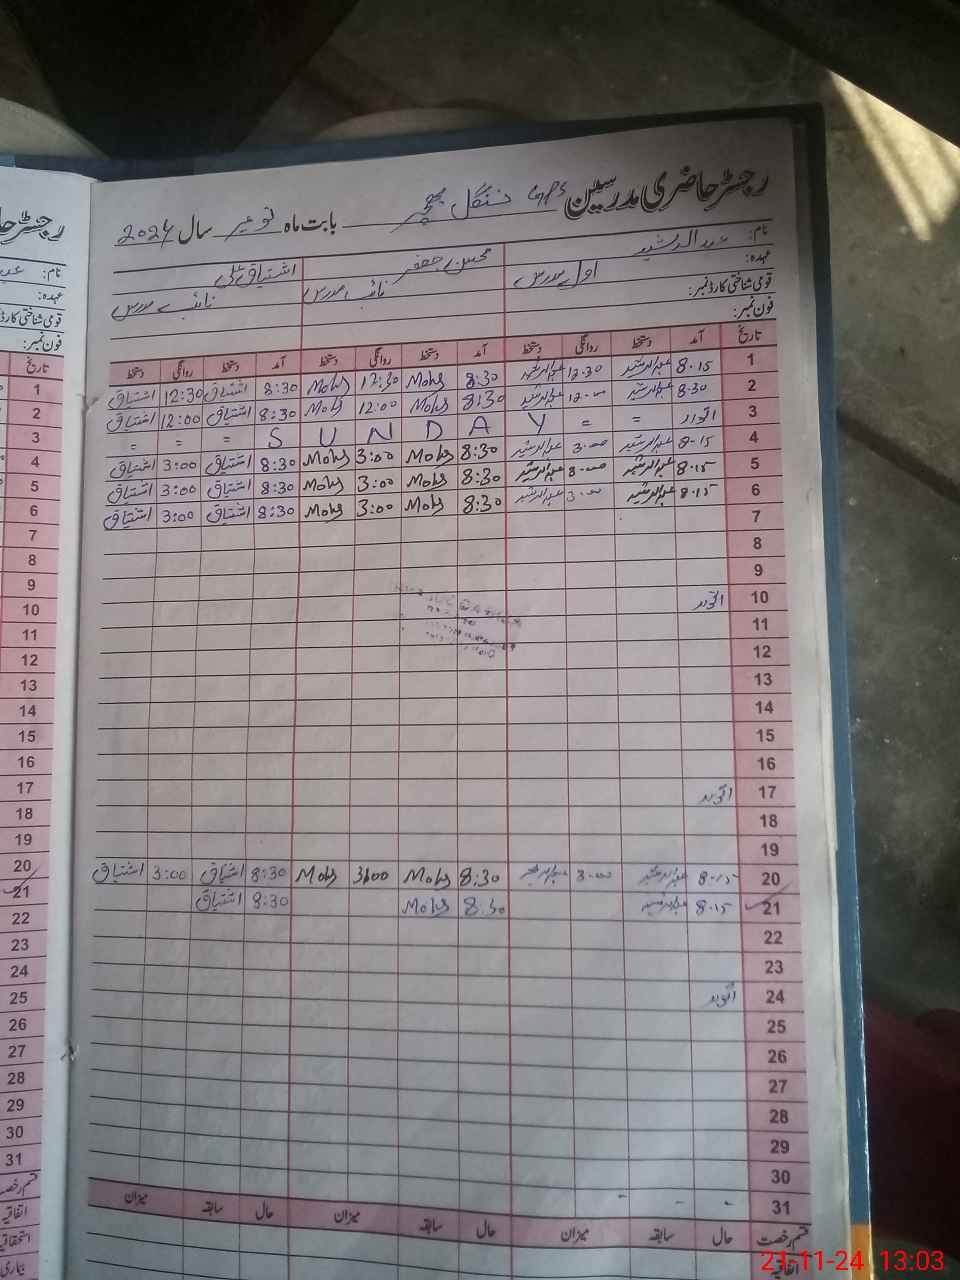 رجسٹر حاضری مدرسین GPS بابت ماہ نومبر سال 2024
نام: عبدالرشید محسن جعفر اشتیاق علی
عہدہ: اول مدرس نائب مدرس نائب مدرس
قومی شناختی کارڈ نمبر:
فون نمبر:
تاریخ آمد دستخط روانگی دستخط آمد دستخط روانگی دستخط آمد دستخط روانگی دستخط
1 8-15 عبدالرشید 12-30 عبدالرشید 8:30 Mohs 12:30 Mohs 8:30 اشتیاق 12:30 اشتیاق
2 8-30 عبدالرشید 12-00 عبدالرشید 8:30 Mohs 12:00 Mohs 8:30 اشتیاق 12:00 اشتیاق
3 اتوار = = S U N D A Y = = =
4 8-15 عبدالرشید 3-00 عبدالرشید 8:30 Mohs 3:00 Mohs 8:30 اشتیاق 3:00 اشتیاق
5 8-15 عبدالرشید 3-00 عبدالرشید 8:30 Mohs 3:00 Mohs 8:30 اشتیاق 3:00 اشتیاق
6 8-15 عبدالرشید 3-00 عبدالرشید 8:30 Mohs 3:00 Mohs 8:30 اشتیاق 3:00 اشتیاق
7
8
9
10 اتوار
11
12
13
14
15
16
17 اتوار
18
19
20 8-15 عبدالرشید 3-00 عبدالرشید 8:30 Mohs 3:00 Mohs 8:30 اشتیاق 3:00 اشتیاق
21 8-15 عبدالرشید 8:30 Mohs 8:30 اشتیاق
22
23
24 اتوار
25
26
27
28
29
30
31
قسم رخصت حال سابقہ میزان حال سابقہ میزان حال سابقہ میزان
اتفاقیہ
رجسٹر حا
نام:
عہدہ:
قومی شناختی کارڈ
فون نمبر:
تاریخ
1
2
3
4
5
6
7
8
9
10
11
12
13
14
15
16
17
18
19
20
21
22
23
24
25
26
27
28
29
30
31
قسم رخصت
اتفاقیہ
استحقاقیہ
بیماری
21-11-24 13:03